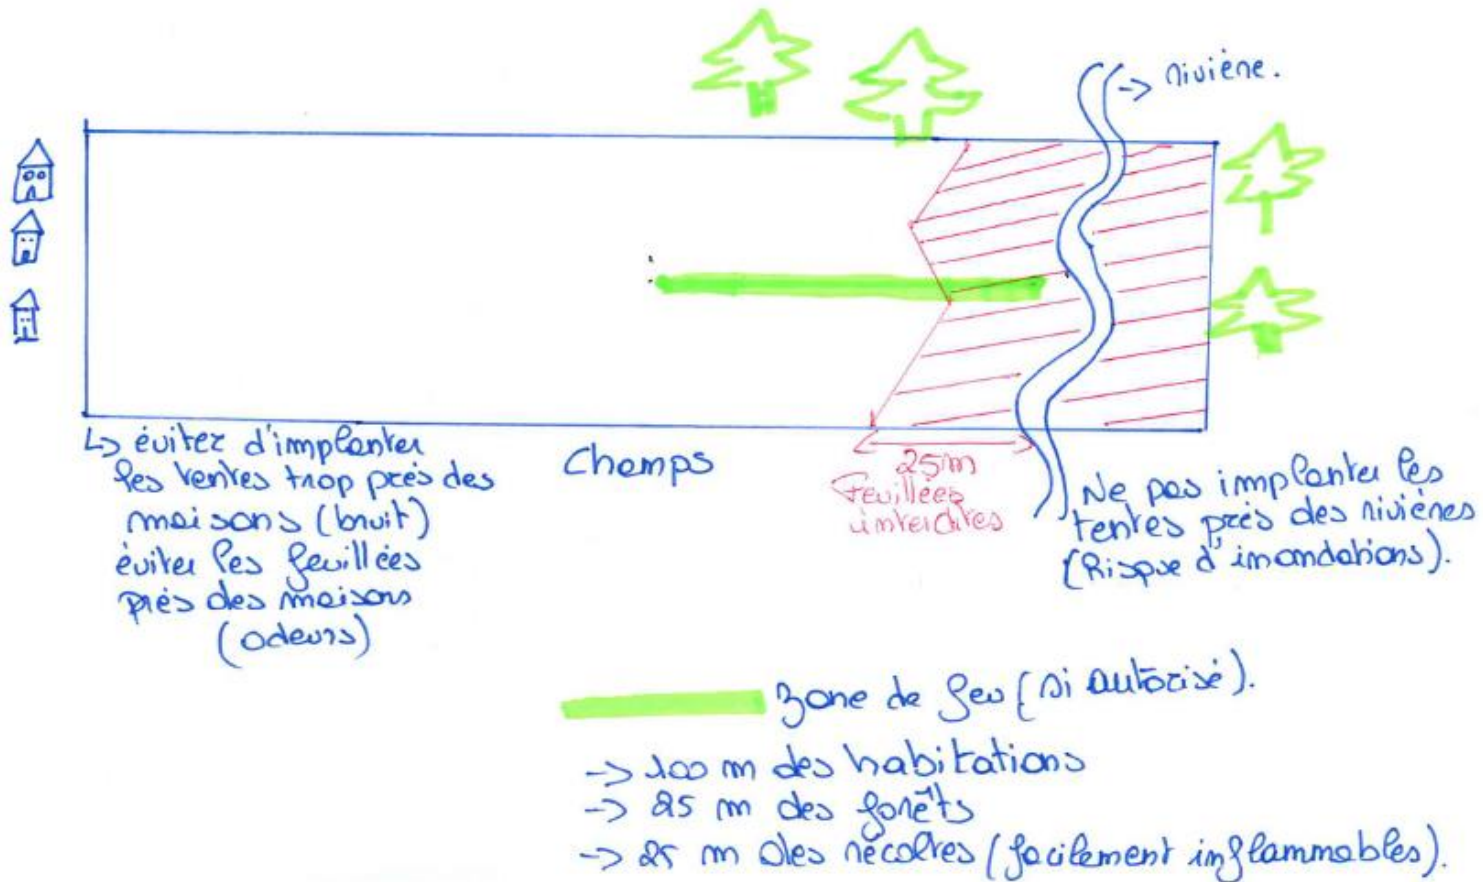 -> rivière.
↳ évitez d'implanter
les tentes trop près des
maisons (bruit)
éviter les feuillées
près des maisons
(odeurs)
Champs
25m
Feuillées
interdites
Ne pas implanter les
tentes près des rivières
(Risque d'inondations).
Zone de feu (si autorisé).
-> 100 m des habitations
-> 25 m des forêts
-> 25 m des récoltes (facilement inflammables).